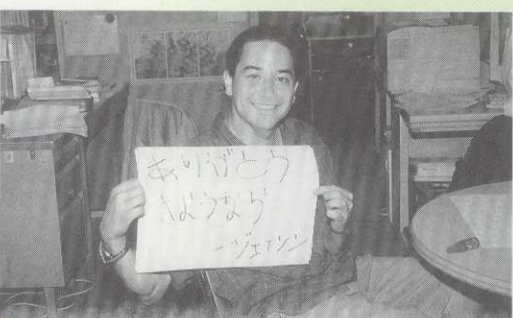 ありがとう
さようなら
－ジェイソン